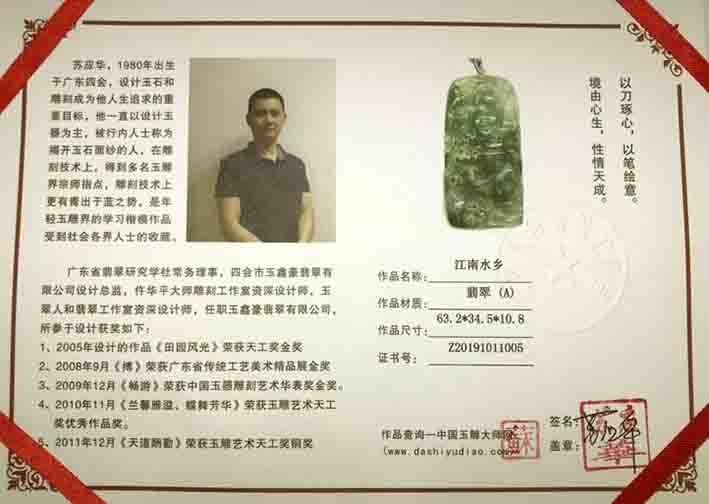 苏应华,1980年出生
于广东四会,设计玉石和
雕刻成为他人生追求的重
要目标,他一直以设计玉
器为主,被行内人士称为
揭开玉石面纱的人,在雕
刻技术上,得到多名玉雕
界宗师指点,雕刻技术上
更有青出于蓝之势,是年
轻玉雕界的学习楷模作品
受到社会各界人士的收藏。
以刀琢心,以笔绘意。
境由心生,性情天成。
广东省翡翠研究学社常务理事,四会市玉鑫豪翡翠有
限公司设计总监,仵华平大师雕刻工作室资深设计师,玉
翠人和翡翠工作室资深设计师,任职玉鑫豪翡翠有限公司,
所参于设计获奖如下:
1、2005年设计的作品《田园风光》荣获天工奖金奖
2、2008年9月《搏》荣获广东省传统工艺美术精品展金奖
3、2009年12月《畅游》荣获中国玉器雕刻艺术华表奖金奖。
4、2010年11月《兰馨雅溢、蝶舞芳华》荣获玉雕艺术天工
奖优秀作品奖。
5、2011年12月《天道酬勤》荣获玉雕艺术天工奖铜奖
作品名称: 江南水乡
作品材质: 翡翠(A)
作品尺寸: 63.2*34.5*10.8
证书号: Z20191011005
作品查询一中国玉雕大师网
(www.dashiyudiao.com)
签名:
盖章: